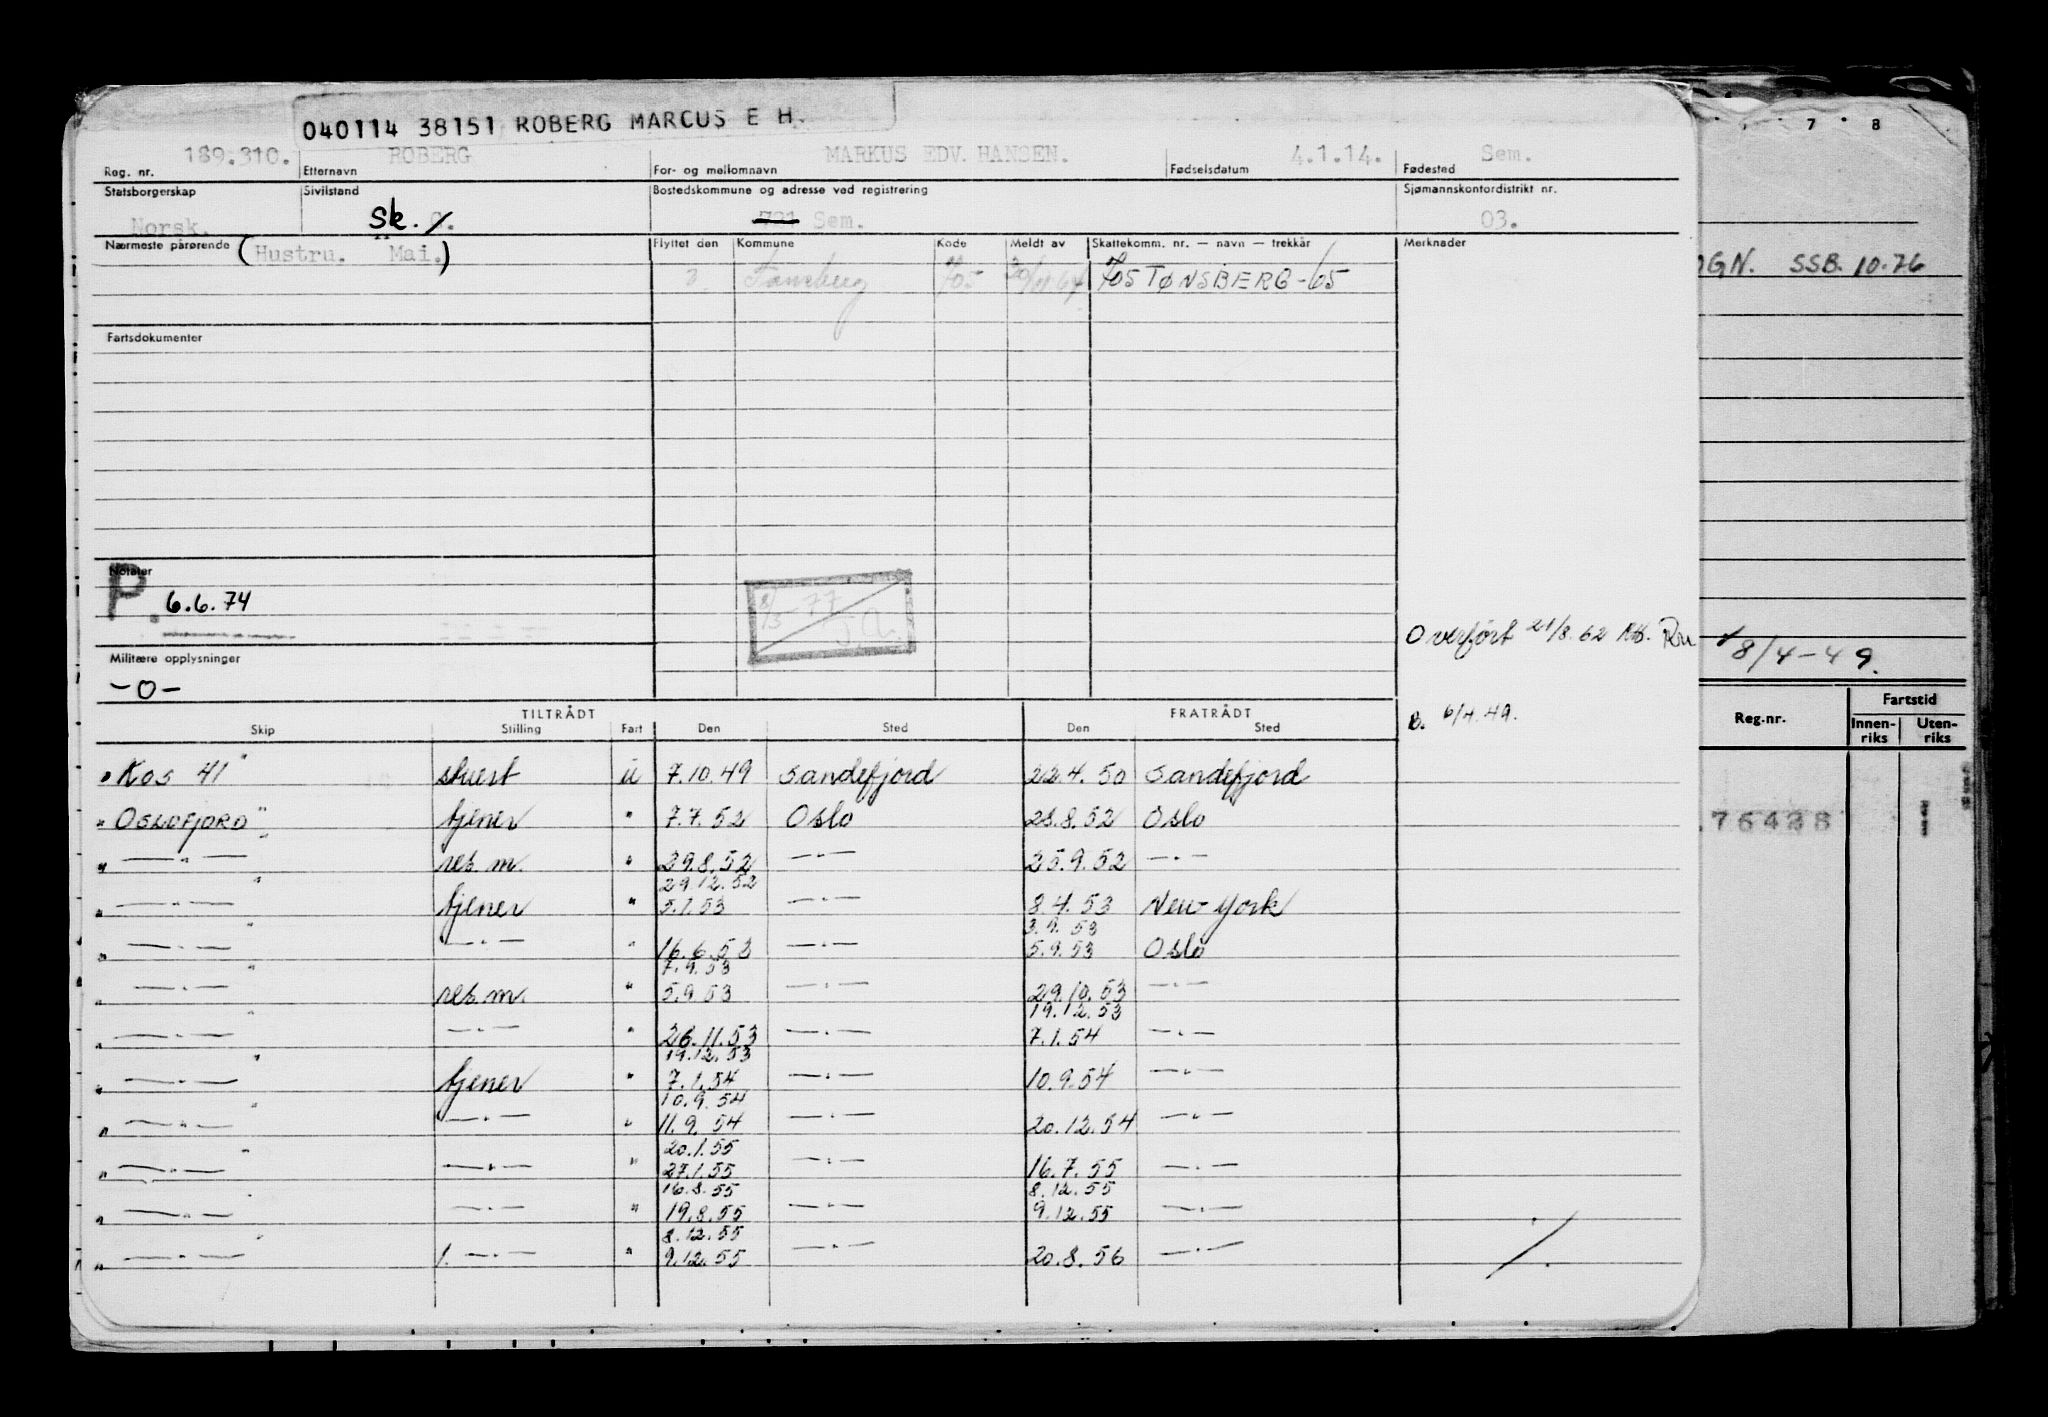 040114 38151 ROBERG MARCUS E H.
7 8
189.310. ROBERG MARKUS EDV. HANSEN. 4.1.14. Sem.
Reg. nr. Etternavn For- og mellomnavn Fødselsdatum Fødested
Statsborgerskap Sivilstand Bostedskommune og adresse ved registrering Sjømannskontordistrikt nr.
Norsk. Sk. Sem. 03.
Nærmeste pårørende (Hustru. Mai.) Flyttet den Kommune Kode Meldt av Skattekomm. nr. — navn — trekkår Merknader
OGN. SSB. 10.76
3. Tønsberg 705 30/11.64 705 TØNSBERG-65
Fartsdokumenter
Notater
P. 6.6.74
8/3-77
Overført 21/8.62
8/4-49.
Militære opplysninger
-0-
TILTRÅDT FRATRÅDT
B. 6/4.49.
Skip Stilling Fart Den Sted Den Sted
Reg.nr. Fartstid
Innenriks Utenriks
" Kos 41" stuert u 7.10.49 Sandefjord 22.4.50 Sandefjord
" OSLOFJORD" tjener " 7.7.52 Oslo 28.8.52 Oslo
76428
" —"— " res.m. " 29.8.52 —"— 25.9.52 —"—
29.12.52
" —"— " tjener " 5.1.53 —"— 8.4.53 New York
3.9.53
" —"— " —"— " 16.6.53 —"— 5.9.53 Oslo
7.9.53
" —"— " res.m. " 5.9.53 —"— 29.10.53 —"—
19.12.53
" —"— " —"— " 26.11.53 —"— 7.1.54 —"—
19.12.53
" —"— " tjener " 7.1.54 —"— 10.9.54 —"—
10.9.54
" —"— " —"— " 11.9.54 —"— 20.12.54 —"—
20.1.55
" —"— " —"— " 27.1.55 —"— 16.7.55 —"—
16.8.55 8.12.55
" —"— " —"— " 19.8.55 —"— 9.12.55 —"—
8.12.55
" —"— " 1. —"— " 9.12.55 —"— 20.8.56 —"—